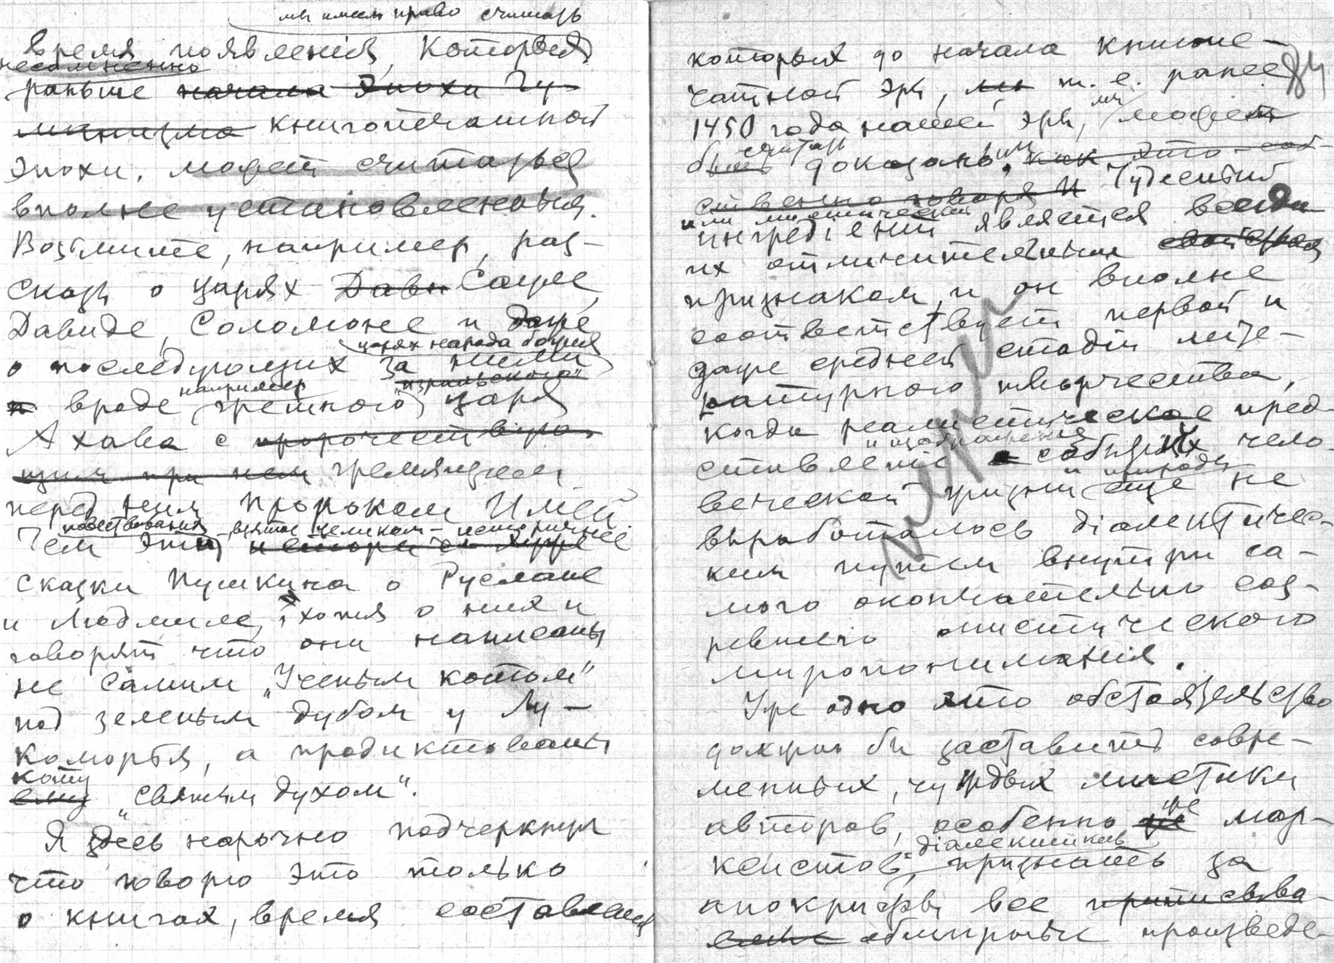 мы имеем право считать
время появленiя, которыя
несомненно
раньше начала Эпохи Гу-
манизма книгопечатной
эпохи, может считаться
вполне установленным.
Возьмите, например, раз-
сказы о царях Дави Сауле,
Давиде, Соломоне и даже
царях народа божия
о последующих за ними
например "израильского"
и вроде "грешного" царя
Ахава с пророчествую-
щим при нем гремящем
перед ним пророком Ильей.
повествования
Чем эти
сказки Пушкина о Руслане
и Людмиле, хотя о них и
говорят что они написаны
не самим "Ученым котом"
под зеленым дубом у Лу-
коморья, а продиктованы
кому
ему "святым духом".
Я здесь нарочно подчеркнул
что говорю это только
о книгах, время составления
которых до начала книгопе-
84
чатной эры, мы т. е. ранее
1450 года нашей эры, мы может
считать
быть доказаны, как это соб-
ственно говоря и Чудесный
или мистический
ингредiент является всегда
их отличительным
признаком, и он вполне
соответствует первой и
даже средней стадiи лите-
ратурного творчества,
когда реалистическое пред-
и изображенiя
ставленiе событiй чело-
и природы
веческой жизни еще не
выработалось дiалектичес-
ким путем внутри са-
мого окончательно соз-
ревшего мистического
миропонимания.
Уже одно это обстоятельство
должно бы заставить совре-
менных, чуждых мистики
авторов, особенно же мар-
дiалектиков
ксистов, признать за
апокрифы все приписыва-
емые обширные произведе-